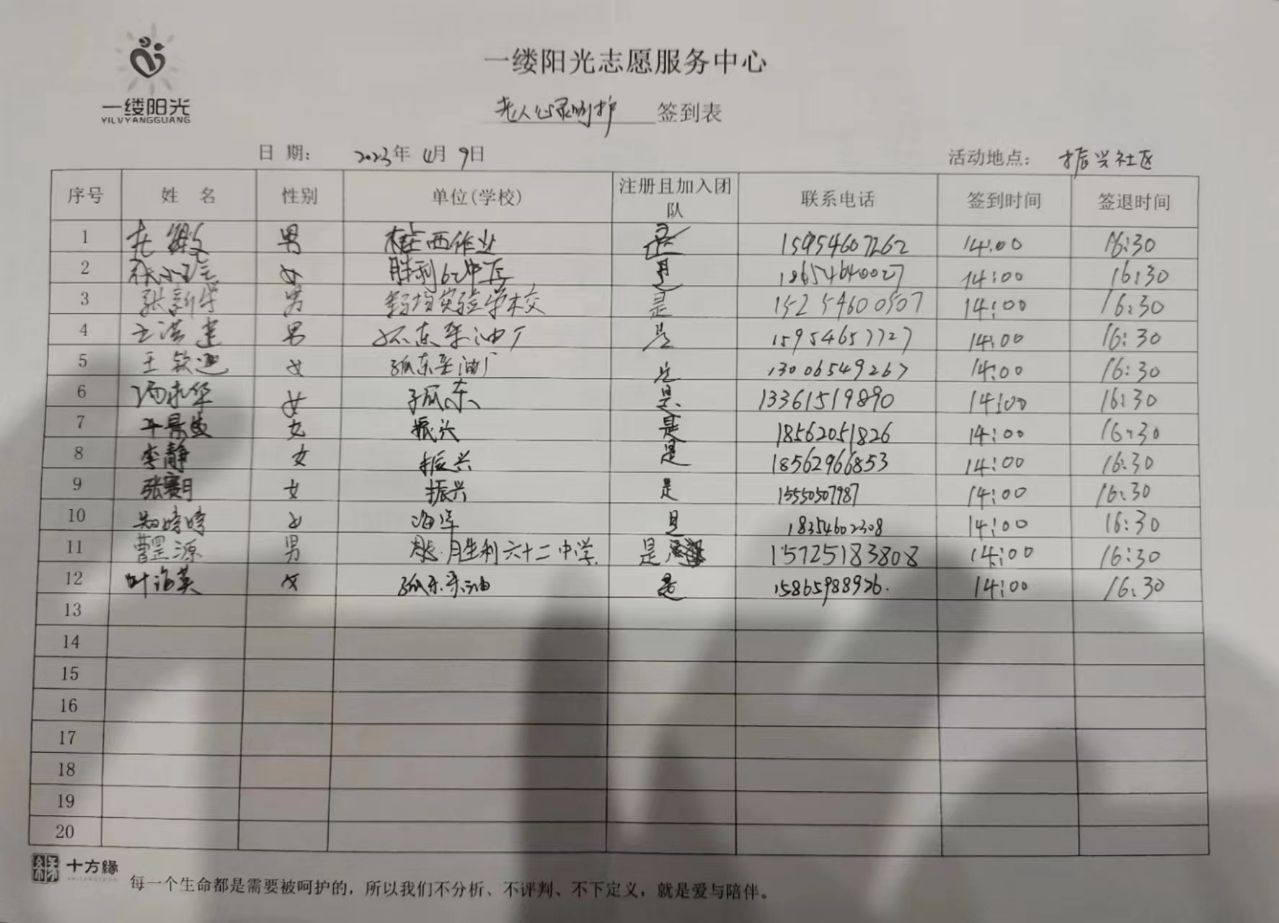 一缕阳光
YILVYANGGUANG
一缕阳光志愿服务中心
老人心灵呵护 签到表
日 期： 2023年 4月 9日 活动地点： 振兴社区
序号 姓 名 性别 单位(学校) 注册且加入团队 联系电话 签到时间 签退时间
1 男 桩西作业 是 15954607262 14:00 16:30
2 女 胜利62中 是 18654640027 14:00 16:30
3 张新华 男 实验学校 是 15254600507 14:00 16:30
4 王洪建 男 孤东采油厂 是 15954657727 14:00 16:30
5 王钦迎 女 孤东采油厂 是 13006549267 14:00 16:30
6 冯永华 女 孤东 是 13361519890 14:00 16:30
7 女 振兴 是 18562051826 14:00 16:30
8 李静 女 振兴 是 18562966853 14:00 16:30
9 张赛月 女 振兴 是 15550507987 14:00 16:30
10 婷婷 女 海洋 是 18354602308 14:00 16:30
11 曹罡源 男 胜利六十二中学 是 15725183808 14:00 16:30
12 叶海英 女 孤东采油 是 15865988926. 14:00 16:30
13
14
15
16
17
18
19
20
十方缘 每一个生命都是需要被呵护的，所以我们不分析、不评判、不下定义，就是爱与陪伴。